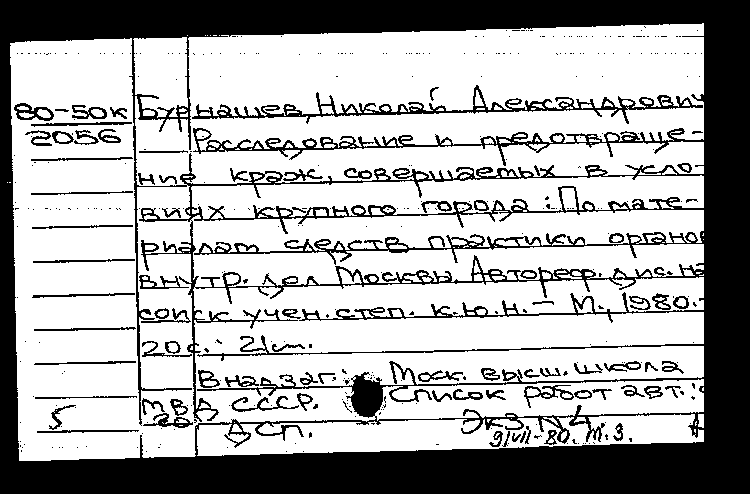 80-50к Бурнашев, Николай Александрович
2056 Расследование и предотвраще-
ние краж, совершаемых в усло-
виях крупного города: По мате-
риалам следств практики органов
внутр. дел Москвы. Автореф. дис. на
соиск учен. степ. к.ю.н. – М., 1980.-
20с.; 21см.
В надзаг.: Моск. высш. школа
5 МВД СССР. Список работ авт.: с
ДСП. Экз. N4.
9/VII-80. т.3.